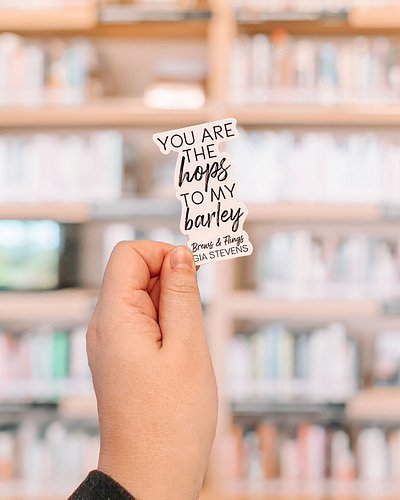 YOU ARE
THE
hops
TO MY
barley
Brews & Flings
GIA STEVENS